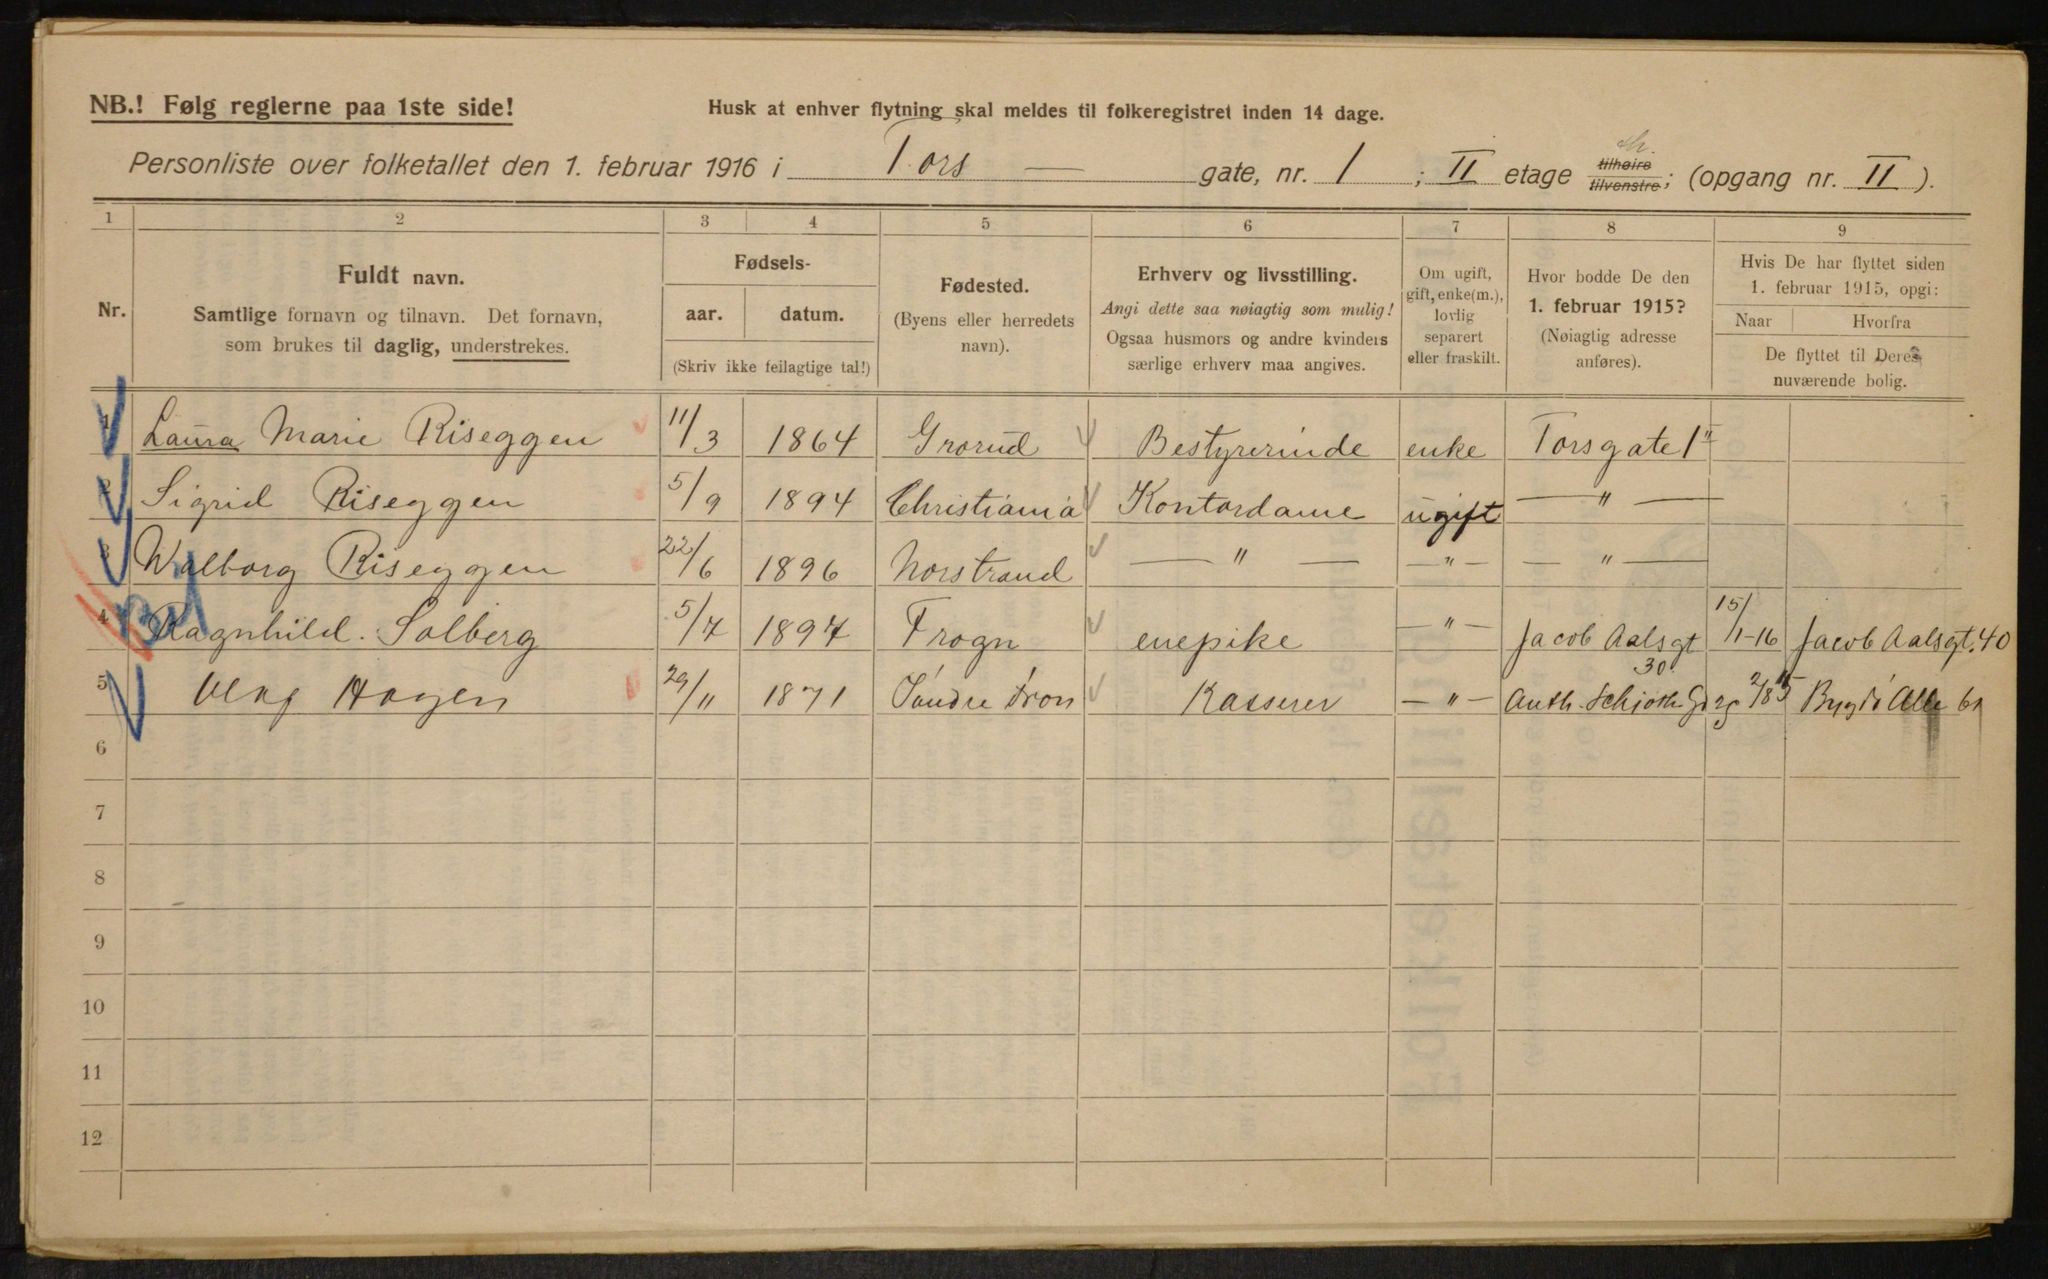 NB.! Følg reglerne paa 1ste side!
Husk at enhver flytning skal meldes til folkeregistret inden 14 dage.
Personliste over folketallet den 1. februar 1916 i Tors — gate, nr. 1 ; II etage tilhøire tilvenstre; (opgang nr. II ).
1 2 3 4 5 6 7 8 9
Nr.
Fuldt navn.
Samtlige fornavn og tilnavn. Det fornavn,
som brukes til daglig, understrekes.
Fødsels-
aar. datum.
(Skriv ikke feilagtige tal!)
Fødested.
(Byens eller herredets
navn).
Erhverv og livsstilling.
Angi dette saa nøiagtig som mulig!
Ogsaa husmors og andre kvinders
særlige erhverv maa angives.
Om ugift,
gift, enke(m.),
lovlig
separert
eller fraskilt.
Hvor bodde De den
1. februar 1915?
(Nøiagtig adresse
anføres).
Hvis De har flyttet siden
1. februar 1915, opgi:
Naar Hvorfra
De flyttet til Deres
nuværende bolig.
1 Laura Marie Riseggen 11/3 1864 Grorud Bestyrerinde enke Torsgate 1 II
2 Sigrid Riseggen 5/9 1894 Christiania Kontordame ugift — " —
3 Walborg Riseggen 22/6 1896 Norstrand — " — — " — — " —
4 Ragnhild. Solberg 5/7 1897 Frogn enepike — " — Jacob Aalsgt 30. 15/1-16 Jacob Aalsgt. 40
5 Hagen 29/11 1871 Søndre Fron Kasserer — " — Anth. Schjøth Gd 25 2/8 15 Bygdø Alle 61
6
7
8
9
10
11
12